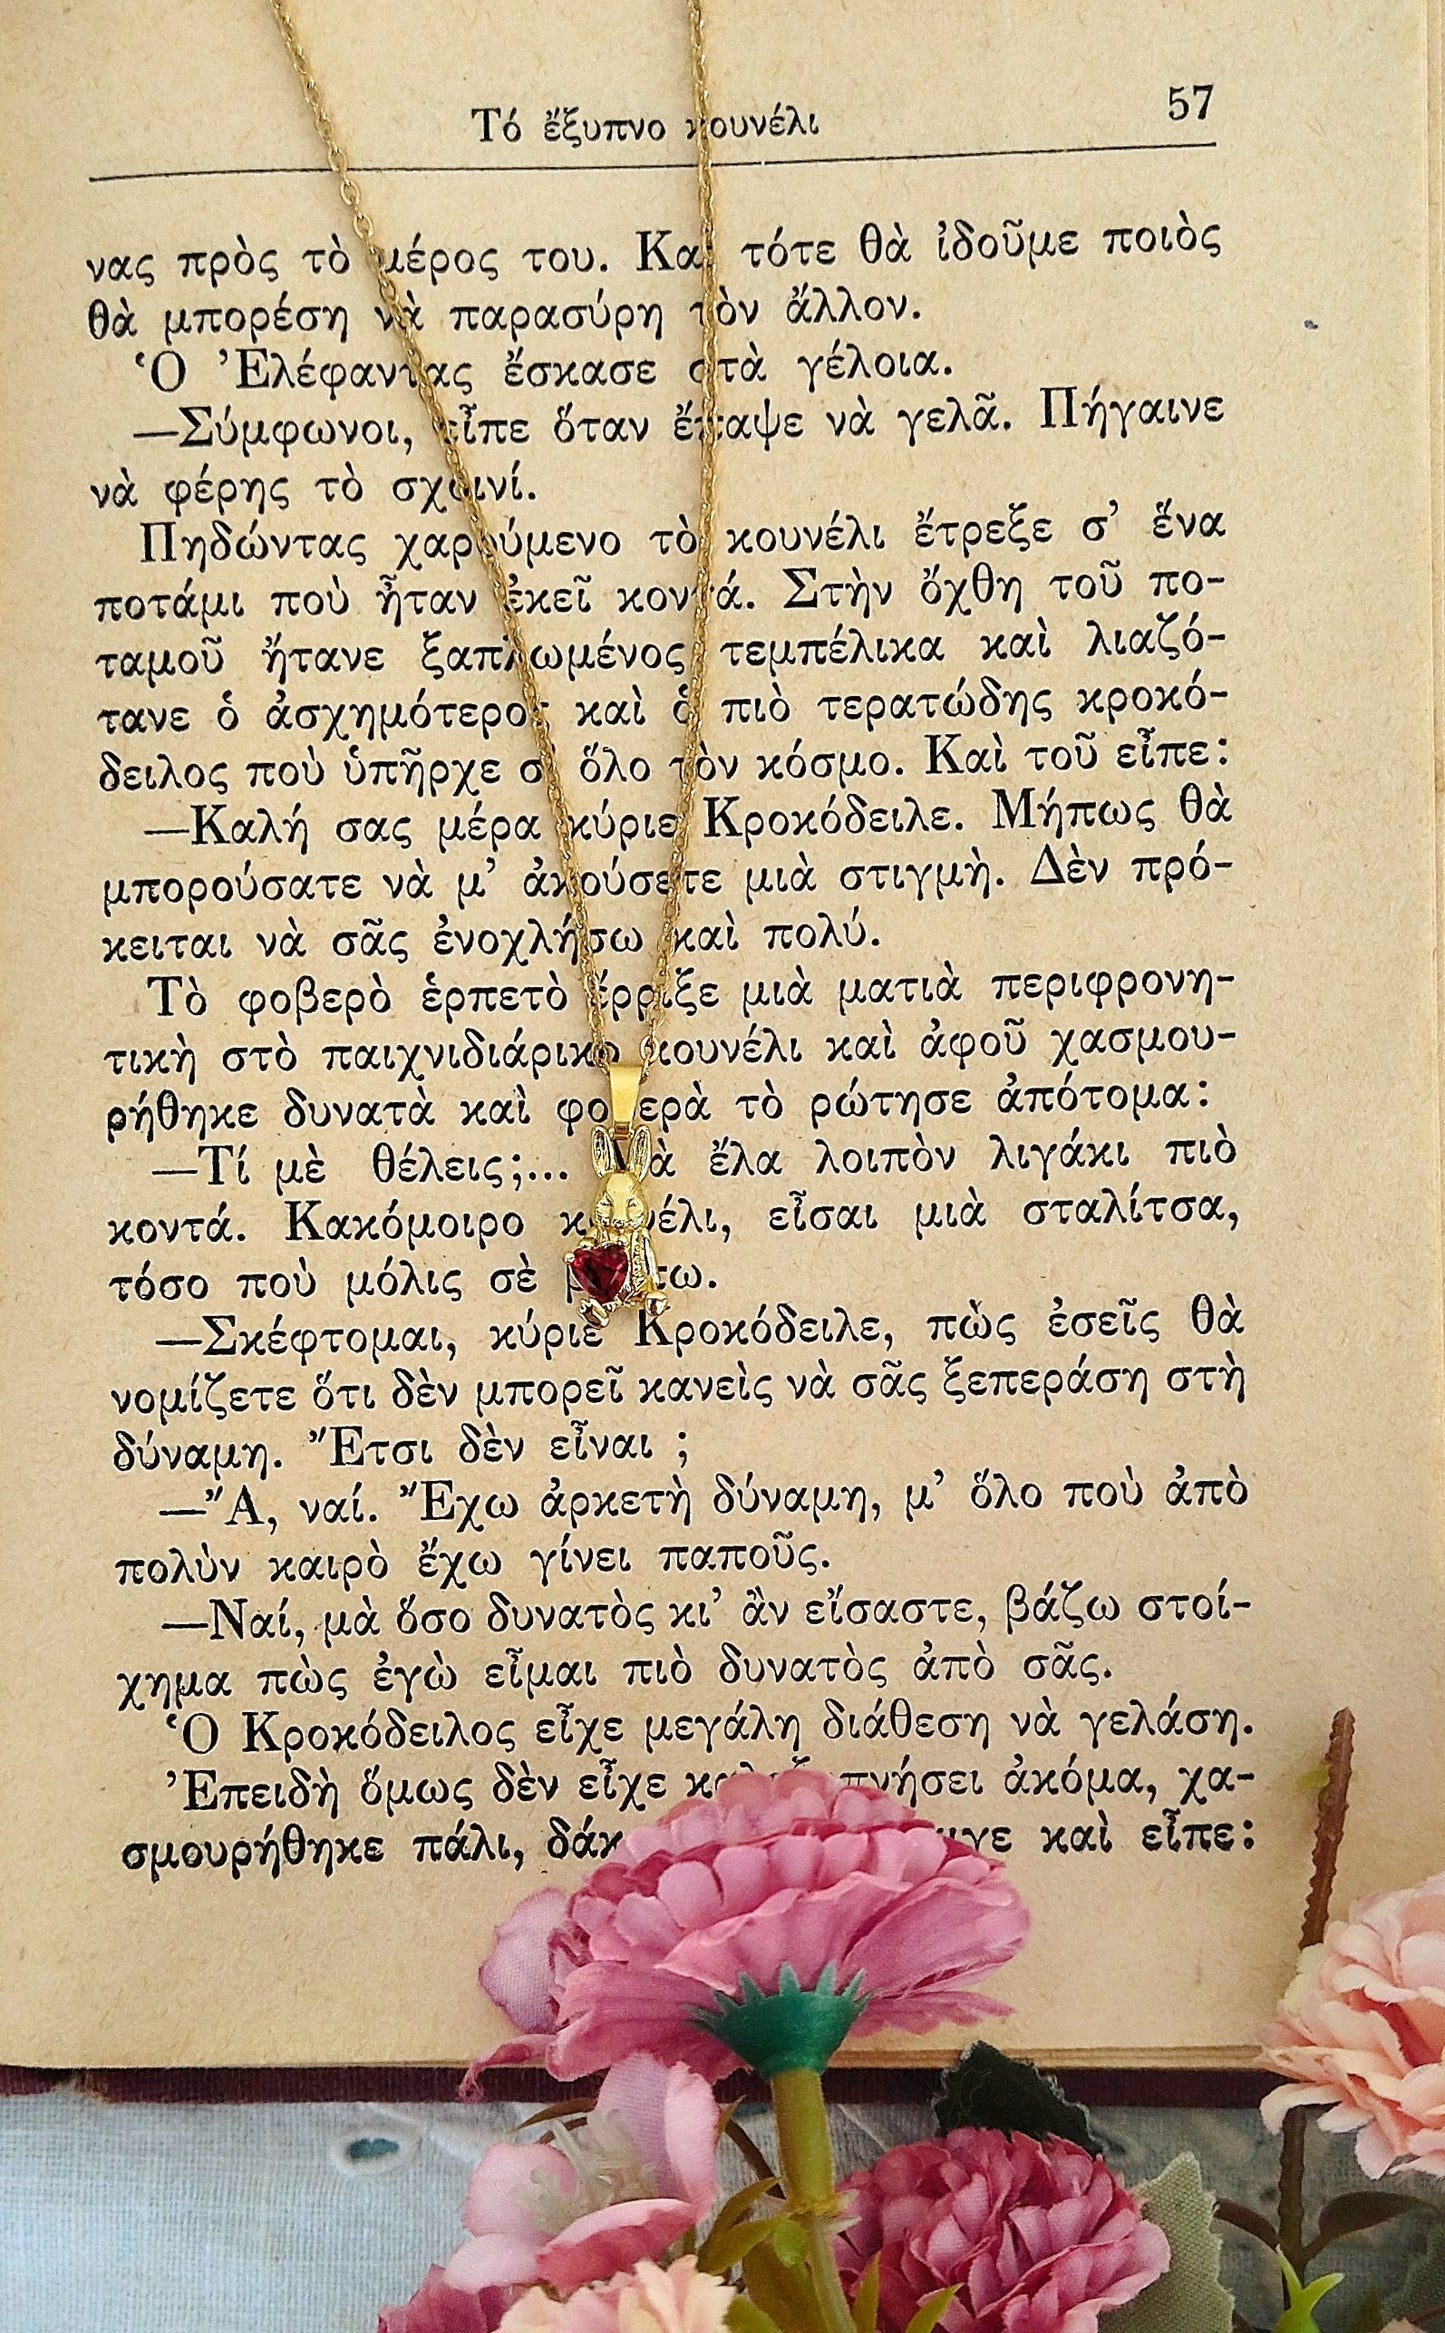 Τό ἔξυπνο κουνέλι 57
νας πρὸς τὸ μέρος του. Καὶ τότε θὰ ἰδοῦμε ποιὸς
θὰ μπορέση νὰ παρασύρη τὸν ἄλλον.
Ὁ Ἐλέφαντας ἔσκασε στὰ γέλοια.
—Σύμφωνοι, εἶπε ὅταν ἔπαψε νὰ γελᾶ. Πήγαινε
νὰ φέρης τὸ σχοινί.
Πηδώντας χαρούμενο τὸ κουνέλι ἔτρεξε σ’ ἕνα
ποτάμι ποὺ ἦταν ἐκεῖ κοντά. Στὴν ὄχθη τοῦ πο-
ταμοῦ ἤτανε ξαπλωμένος τεμπέλικα καὶ λιαζό-
τανε ὁ ἀσχημότερος καὶ ὁ πιὸ τερατώδης κροκό-
δειλος ποὺ ὑπῆρχε σ’ ὅλο τὸν κόσμο. Καὶ τοῦ εἶπε:
—Καλή σας μέρα κύριε Κροκόδειλε. Μήπως θὰ
μπορούσατε νὰ μ’ ἀκούσετε μιὰ στιγμὴ. Δὲν πρό-
κειται νὰ σᾶς ἐνοχλήσω καὶ πολύ.
Τὸ φοβερὸ ἑρπετὸ ἔρριξε μιὰ ματιὰ περιφρονη-
τικὴ στὸ παιχνιδιάρικο κουνέλι καὶ ἀφοῦ χασμου-
ρήθηκε δυνατὰ καὶ φοβερὰ τὸ ρώτησε ἀπότομα:
—Τί μὲ θέλεις;... ἔλα λοιπὸν λιγάκι πιὸ
κοντά. Κακόμοιρο κουνέλι, εἶσαι μιὰ σταλίτσα,
τόσο ποὺ μόλις σὲ βλέπω.
—Σκέφτομαι, κύριε Κροκόδειλε, πὼς ἐσεῖς θὰ
νομίζετε ὅτι δὲν μπορεῖ κανεὶς νὰ σᾶς ξεπεράση στὴ
δύναμη. Ἔτσι δὲν εἶναι ;
—Ἄ, ναί. Ἔχω ἀρκετὴ δύναμη, μ’ ὅλο ποὺ ἀπὸ
πολὺν καιρὸ ἔχω γίνει παποῦς.
—Ναί, μὰ ὅσο δυνατὸς κι’ ἂν εἴσαστε, βάζω στοί-
χημα πὼς ἐγὼ εἶμαι πιὸ δυνατὸς ἀπὸ σᾶς.
Ὁ Κροκόδειλος εἶχε μεγάλη διάθεση νὰ γελάση.
Ἐπειδὴ ὅμως δὲν εἶχε καλοξυπνήσει ἀκόμα, χα-
σμουρήθηκε πάλι, καὶ εἶπε: